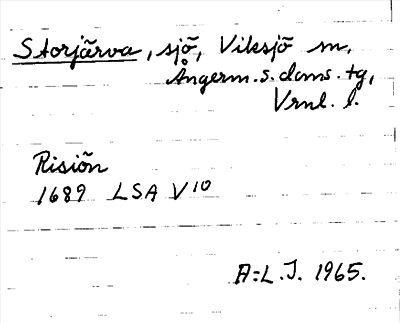 Storjärva, sjö, Viksjö sn,
Ångerm. s. doms. tg,
Vrnl. l.
Risiön
1689 LSA V¹⁰
A:L.J. 1965.